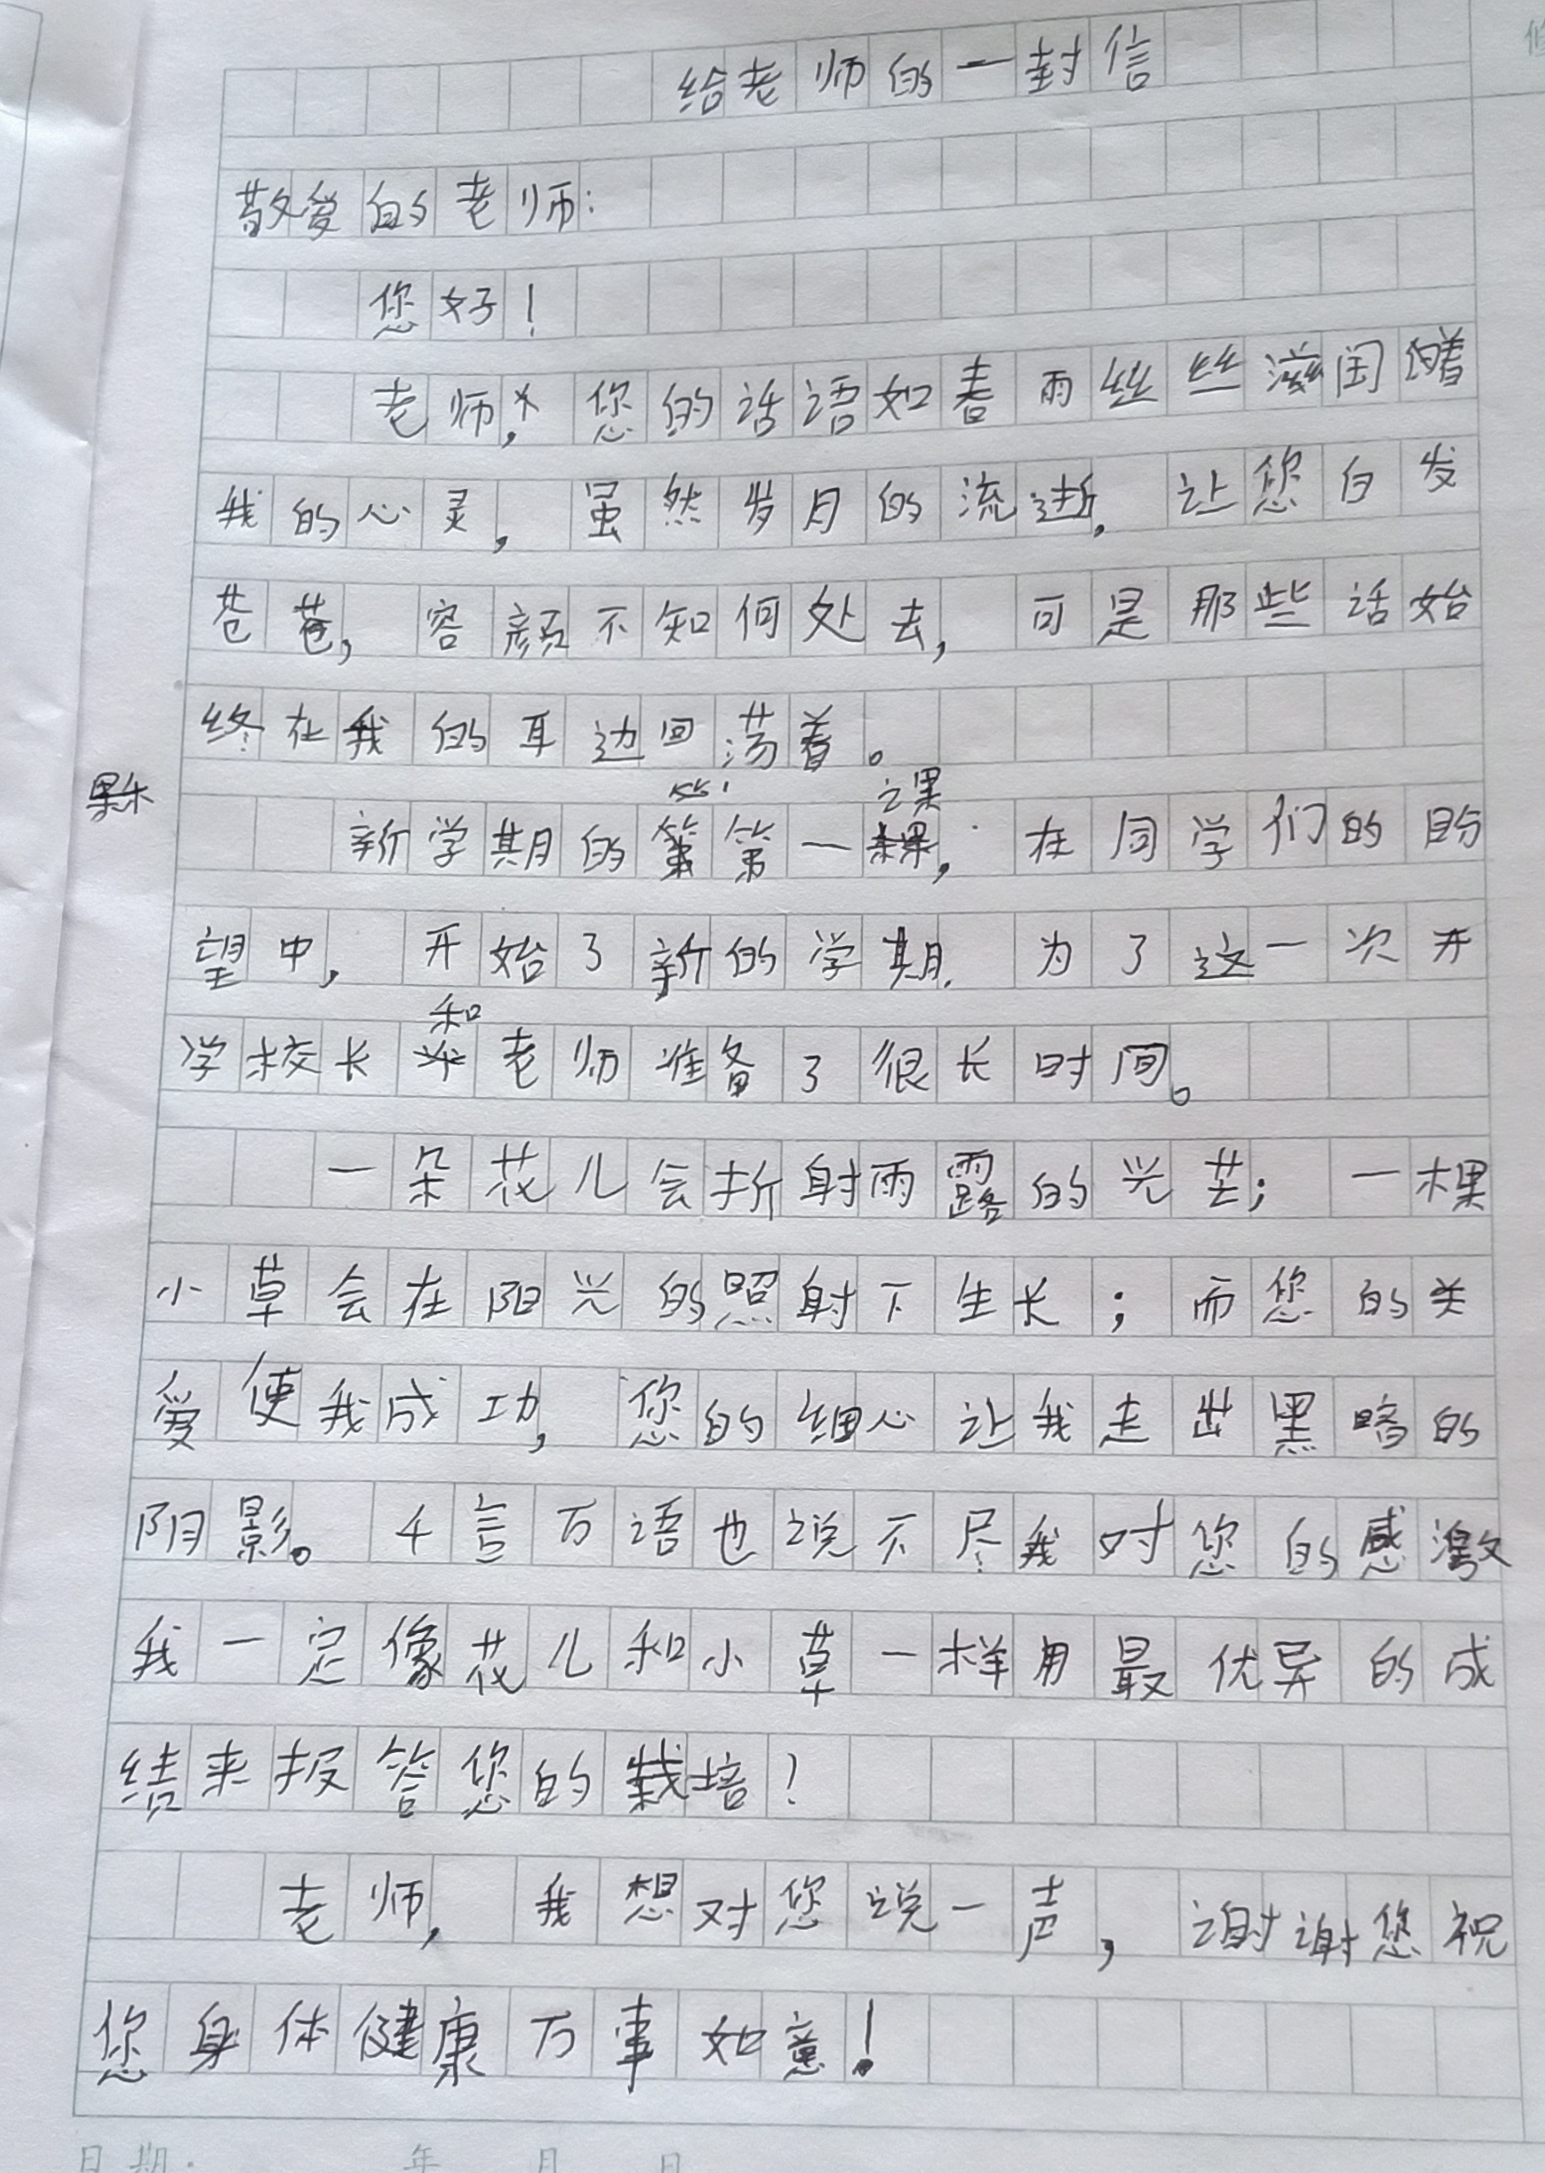 给老师的一封信
敬爱的老师：
您好！
老师，您的话语如春雨丝丝滋润着
我的心灵，虽然岁月的流逝，让您白发
苍苍，容颜不知何处去，可是那些话始
终在我的耳边回荡着。
新学期的第一课，在同学们的盼
望中，开始了新的学期.为了这一次开
学校长和老师准备了很长时间。
一朵花儿会折射雨露的光芒；一棵
小草会在阳光的照射下生长；而您的关
爱使我成功，您的细心让我走出黑暗的
阴影。千言万语也说不尽我对您的感激
我一定像花儿和小草一样用最优异的成
绩来报答您的栽培！
老师，我想对您说一声，谢谢您祝
您身体健康万事如意！
日期：　年　月　日